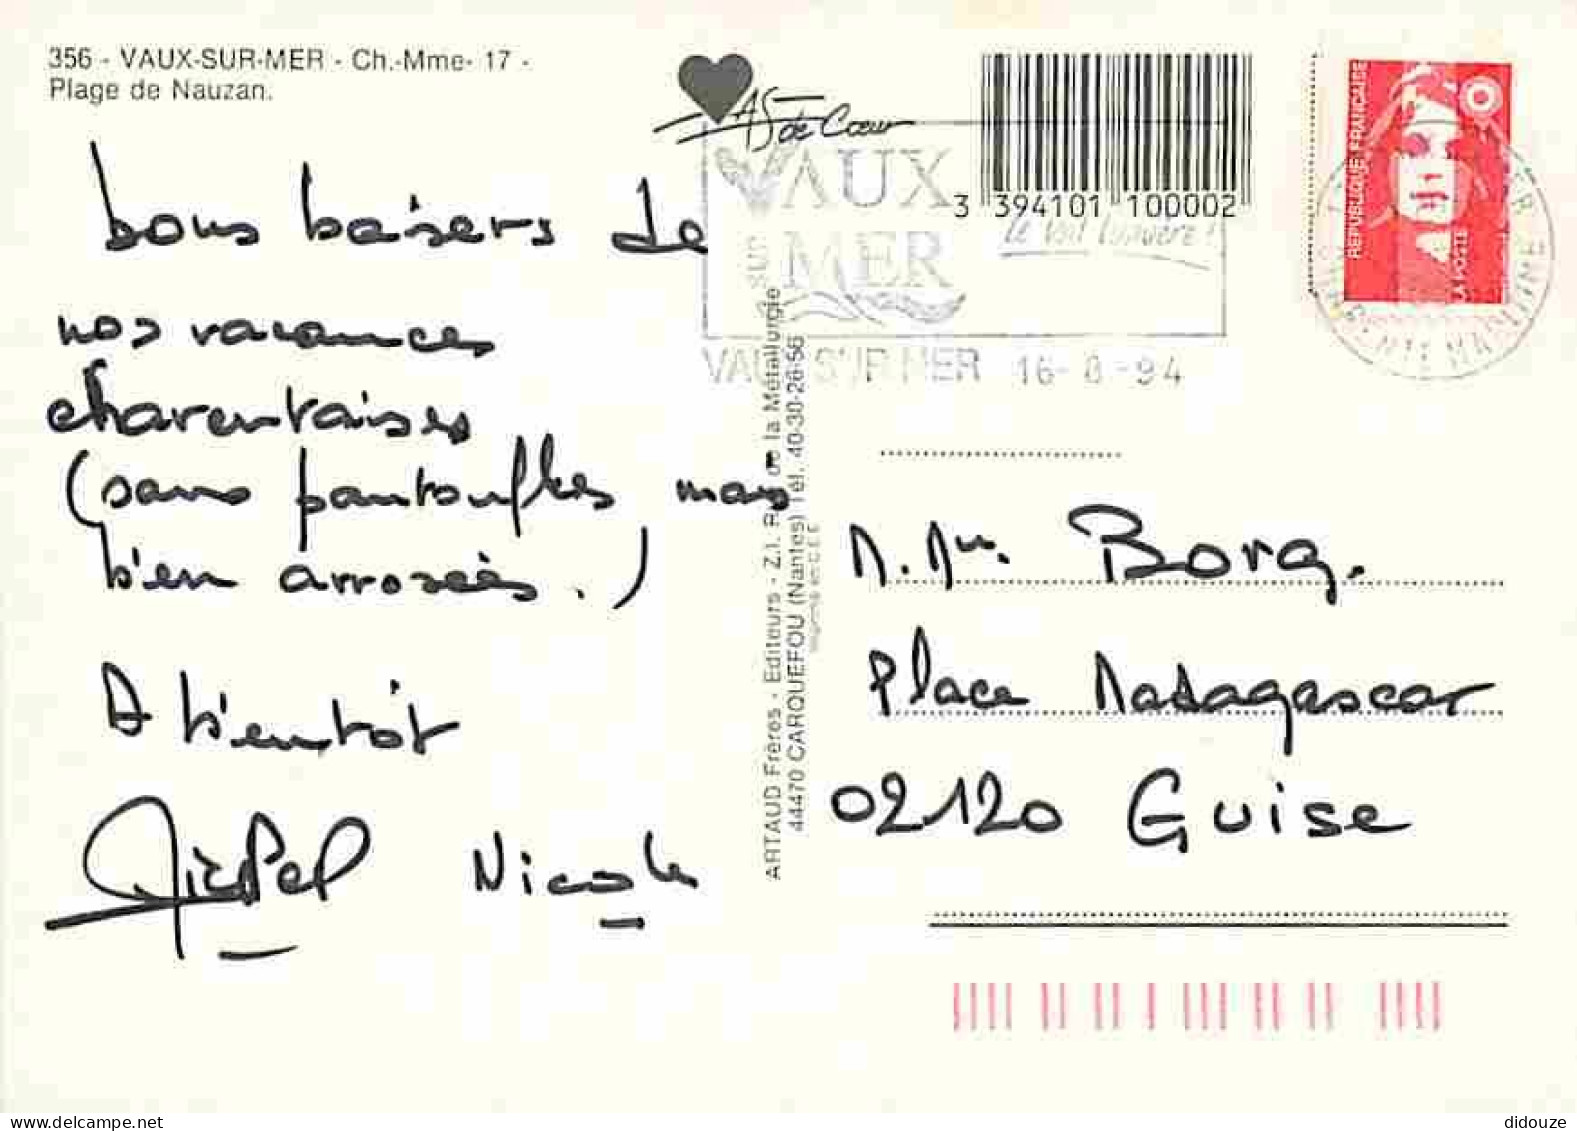 356 - VAUX-SUR-MER - Ch.-Mme- 17 -
Plage de Nauzan.
AS de Cœur
3 394101 100002
VAUX
SUR
MER
VAUX SUR MER 16- 8 -94
REPUBLIQUE FRANÇAISE
LA POSTE
bons baisers de
nos vacances
charentaises
(sans pantoufles, mais
bien arrosées.)
A bientôt
Michel Nicole
ARTAUD Frères - Editeurs - Z.I. Rue de la Métallurgie
44470 CARQUEFOU (Nantes) Tél. 40-30-26-56
Imprimé en C.E.E.
M. Mme. Borg.
Place Madagascar
02120 Guise
didouze
delcampe.net